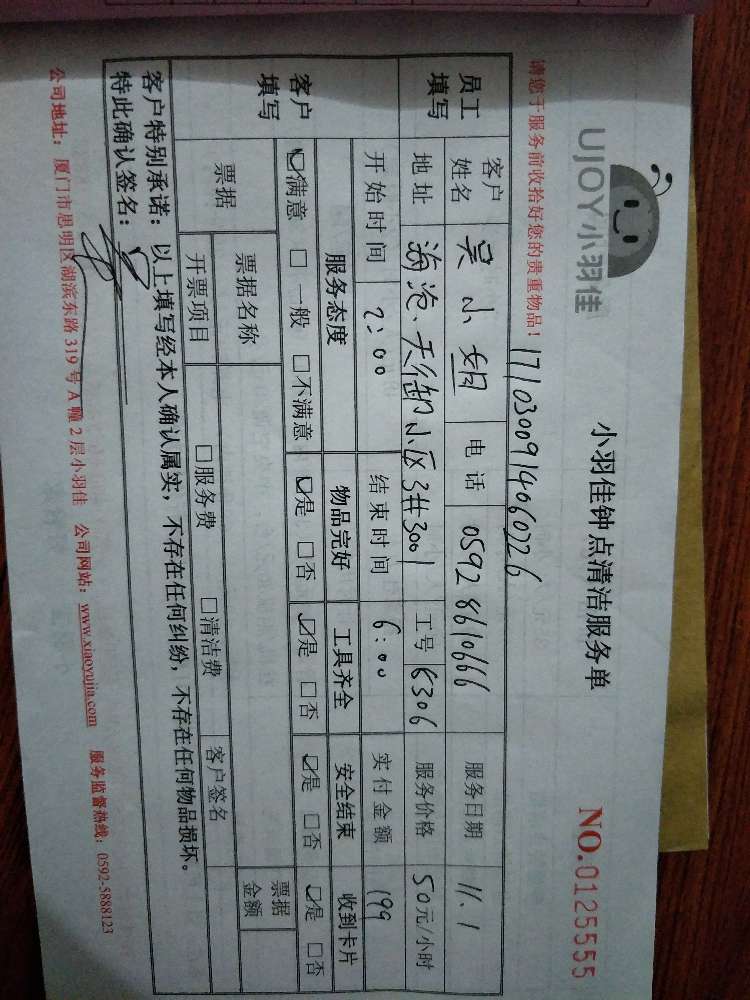 UJOY小羽佳
小羽佳钟点清洁服务单
NO.0125555
请您于服务前收拾好您的贵重物品!
1710300914060226
员工填写
客户姓名 吴小娟 电话 0592 8610666 服务日期 11.1
地址 海沧、天御小区3#3001 工号 8306 服务价格 50元/小时
开始时间 2:00 结束时间 6:00 实付金额 199
客户填写
服务态度 物品完好 工具齐全 安全结束 收到卡片
☑满意 □一般 □不满意 ☑是 □否 ☑是 □否 ☑是 □否 ☑是 □否
票据 票据名称 票据金额
开票项目 □服务费 □清洁费 客户签名
客户特别承诺:以上填写经本人确认属实,不存在任何纠纷,不存在任何物品损坏。
特此确认签名:
公司地址:厦门市思明区湖滨东路319号A幢2层小羽佳 公司网站:www.xiaoyujia.com 服务监督热线:0592-5888123